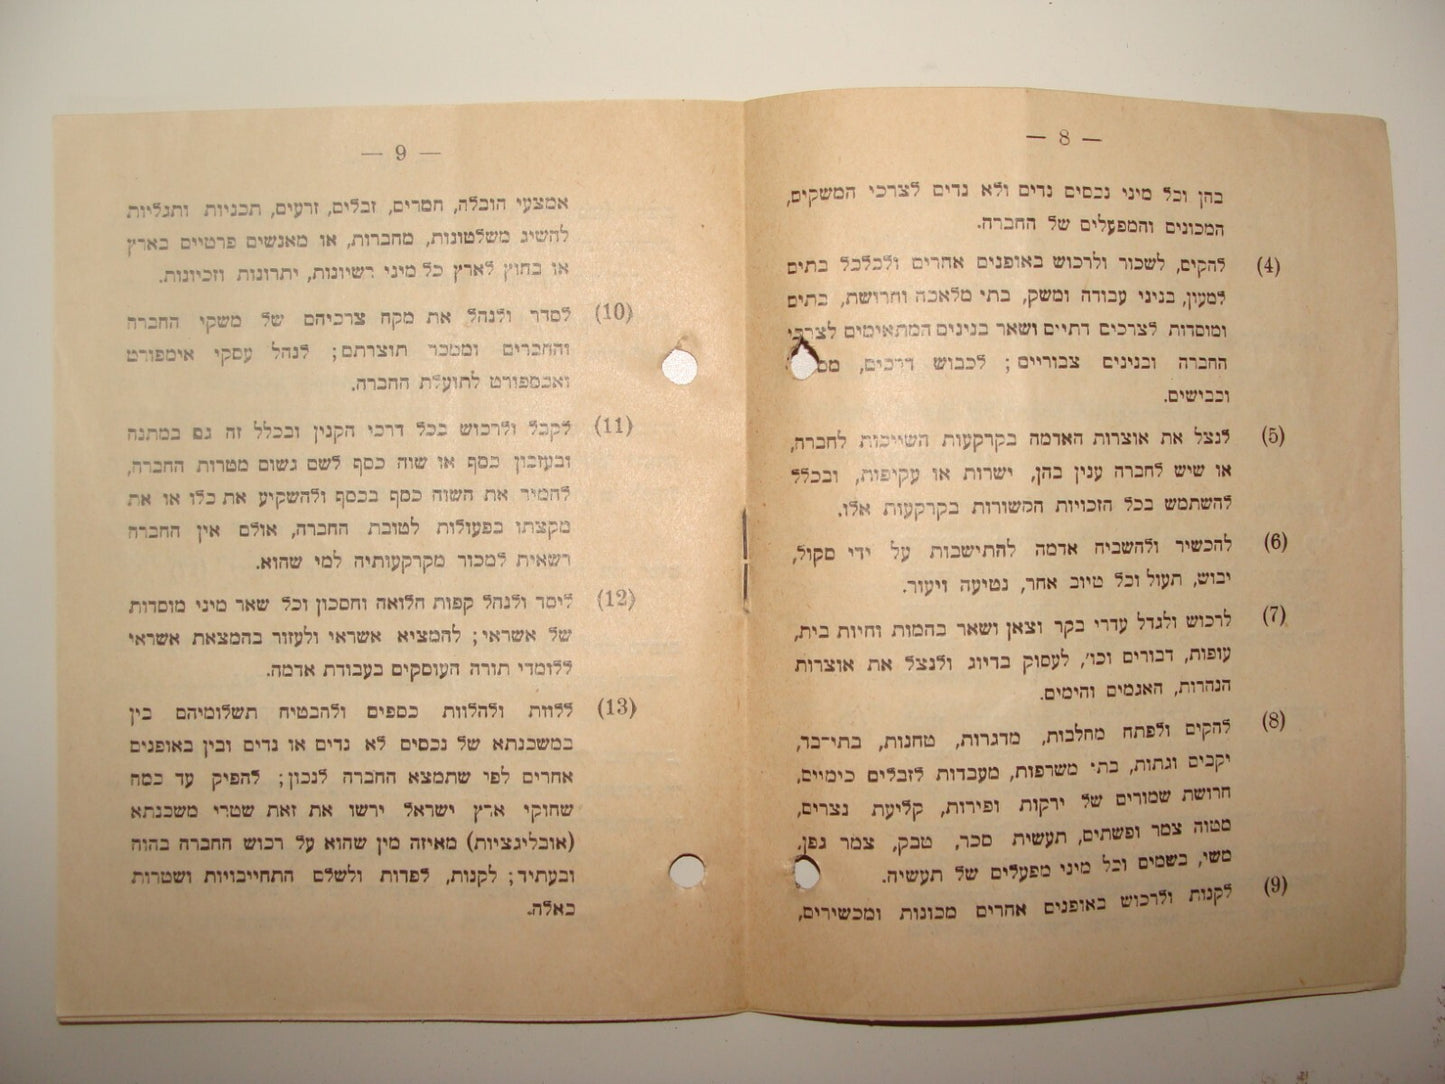 — 8 —
בהן וכל מיני נכסים נדים ולא נדים לצרכי המשקים,
המכונים והמפעלים של החברה.
(4) להקים, לשכור ולרכוש באופנים אחרים ולכלכל בתים
למעון, בניני עבודה ומשק, בתי מלאכה וחרושת, בתים
ומוסדות לצרכים דתיים ושאר בנינים המתאימים לצרכי
החברה ובנינים צבוריים; לכבוש דרכים,
וכבישים.
(5) לנצל את אוצרות האדמה בקרקעות השייכות לחברה,
או שיש לחברה ענין בהן, ישרות או עקיפות, ובכלל
להשתמש בכל הזכויות הקשורות בקרקעות אלו.
(6) להכשיר ולהשביח אדמה להתישבות על ידי סקול,
יבוש, תעול וכל טיוב אחר, נטיעה ויעור.
(7) לרכוש ולגדל עדרי בקר וצאן ושאר בהמות וחיות בית,
עופות, דבורים וכו׳, לעסוק בדיוג ולנצל את אוצרות
הנהרות, האגמים והימים.
(8) להקים ולפתח מחלבות, מדגרות, טחנות, בתי־בד,
יקבים וגתות, בתי משרפות, מעבדות לזבלים כימיים,
חרושת שמורים של ירקות ופירות, קליעת נצרים,
מטוה צמר ופשתים, תעשית סכר, טבק, צמר גפן,
משי, בשמים וכל מיני מפעלים של תעשיה.
(9) לקנות ולרכוש באופנים אחרים מכונות ומכשירים,
— 9 —
אמצעי הובלה, חמרים, זבלים, זרעים, תכניות ותגליות
להשיג משלטונות, מחברות, או מאנשים פרטיים בארץ
או בחוץ לארץ כל מיני רשיונות, יתרונות וזכיונות.
(10) לסדר ולנהל את מקח צרכיהם של משקי החברה
והחברים וממכר תוצרתם; לנהל עסקי אימפורט
ואכספורט לתועלת החברה.
(11) לקבל ולרכוש בכל דרכי הקנין ובכלל זה גם במתנה
ובעזבון כסף או שוה כסף לשם גשום מטרות החברה,
להמיר את השוה כסף בכסף ולהשקיע את כלו או את
מקצתו בפעולות לטובת החברה, אולם אין החברה
רשאית למכור מקרקעותיה למי שהוא.
(12) ליסד ולנהל קפות הלואה וחסכון וכל שאר מיני מוסדות
של אשראי; להמציא אשראי ולעזור בהמצאת אשראי
ללומדי תורה העוסקים בעבודת אדמה.
(13) ללוות ולהלוות כספים ולהבטיח תשלומיהם בין
במשכנתא של נכסים לא נדים או נדים ובין באופנים
אחרים לפי שתמצא החברה לנכון; להפיק עד כמה
שחוקי ארץ ישראל ירשו את זאת שטרי משכנתא
(אובליגציות) מאיזה מין שהוא על רכוש החברה בהוה
ובעתיד; לקנות, לפדות ולשלם התחייבויות ושטרות
כאלה.